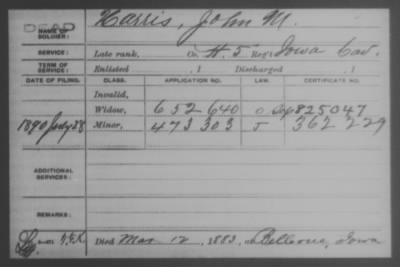 DEAD
NAME OF SOLDIER: Harris, John M.
SERVICE: Late rank, Co. H, 5 Reg't Iowa Cav.
TERM OF SERVICE: Enlisted , 1 Discharged , 1
DATE OF FILING. CLASS. APPLICATION NO. LAW. CERTIFICATE NO.
Invalid,
Widow, 652 640 825047
1890 July 28 Minor, 473 303 J 362 229
ADDITIONAL SERVICES:
REMARKS:
Died Mar 12, 1883, at Bellevue, Iowa